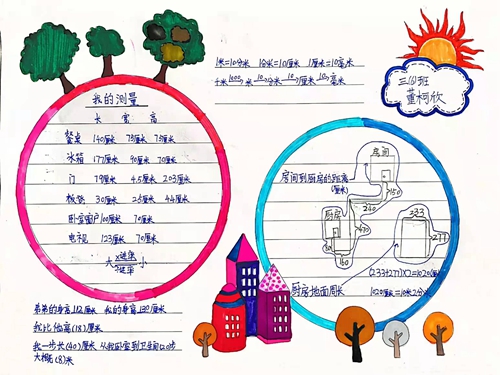 1米=10分米 1分米=10厘米 1厘米=10毫米
千米 1000 米 10 分米 10 厘米 10 毫米
三(6)班
董柯欣
我的测量
长 宽 高
餐桌 140厘米 75厘米 75厘米
冰箱 177厘米 90厘米 70厘米
门 79厘米 4.5厘米 203厘米
板凳 30厘米 25厘米 44厘米
卧室窗户100厘米 70厘米
电视 123厘米 70厘米
大 小
房间
房间到厨房的距离
(厘米)
150
240
厨房
333
277
(333+277)×2=1020厘米
厨房地面周长
1020厘米=10米2分米
弟弟的身高112厘米 我的身高130厘米
我比他高(18)厘米
我一步长(40)厘米 从我卧室到卫生间20步
大概(8)米